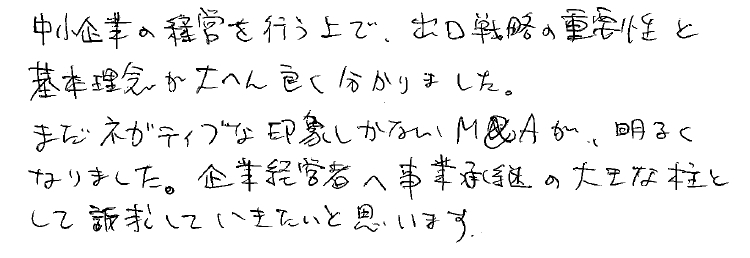 中小企業の経営を行う上で、出口戦略の重要性と
基本理念が大へん良く分かりました。
まだネガティブな印象しかないM&Aが、明るく
なりました。企業経営者へ事業承継の大きな柱と
して訴求していきたいと思います。